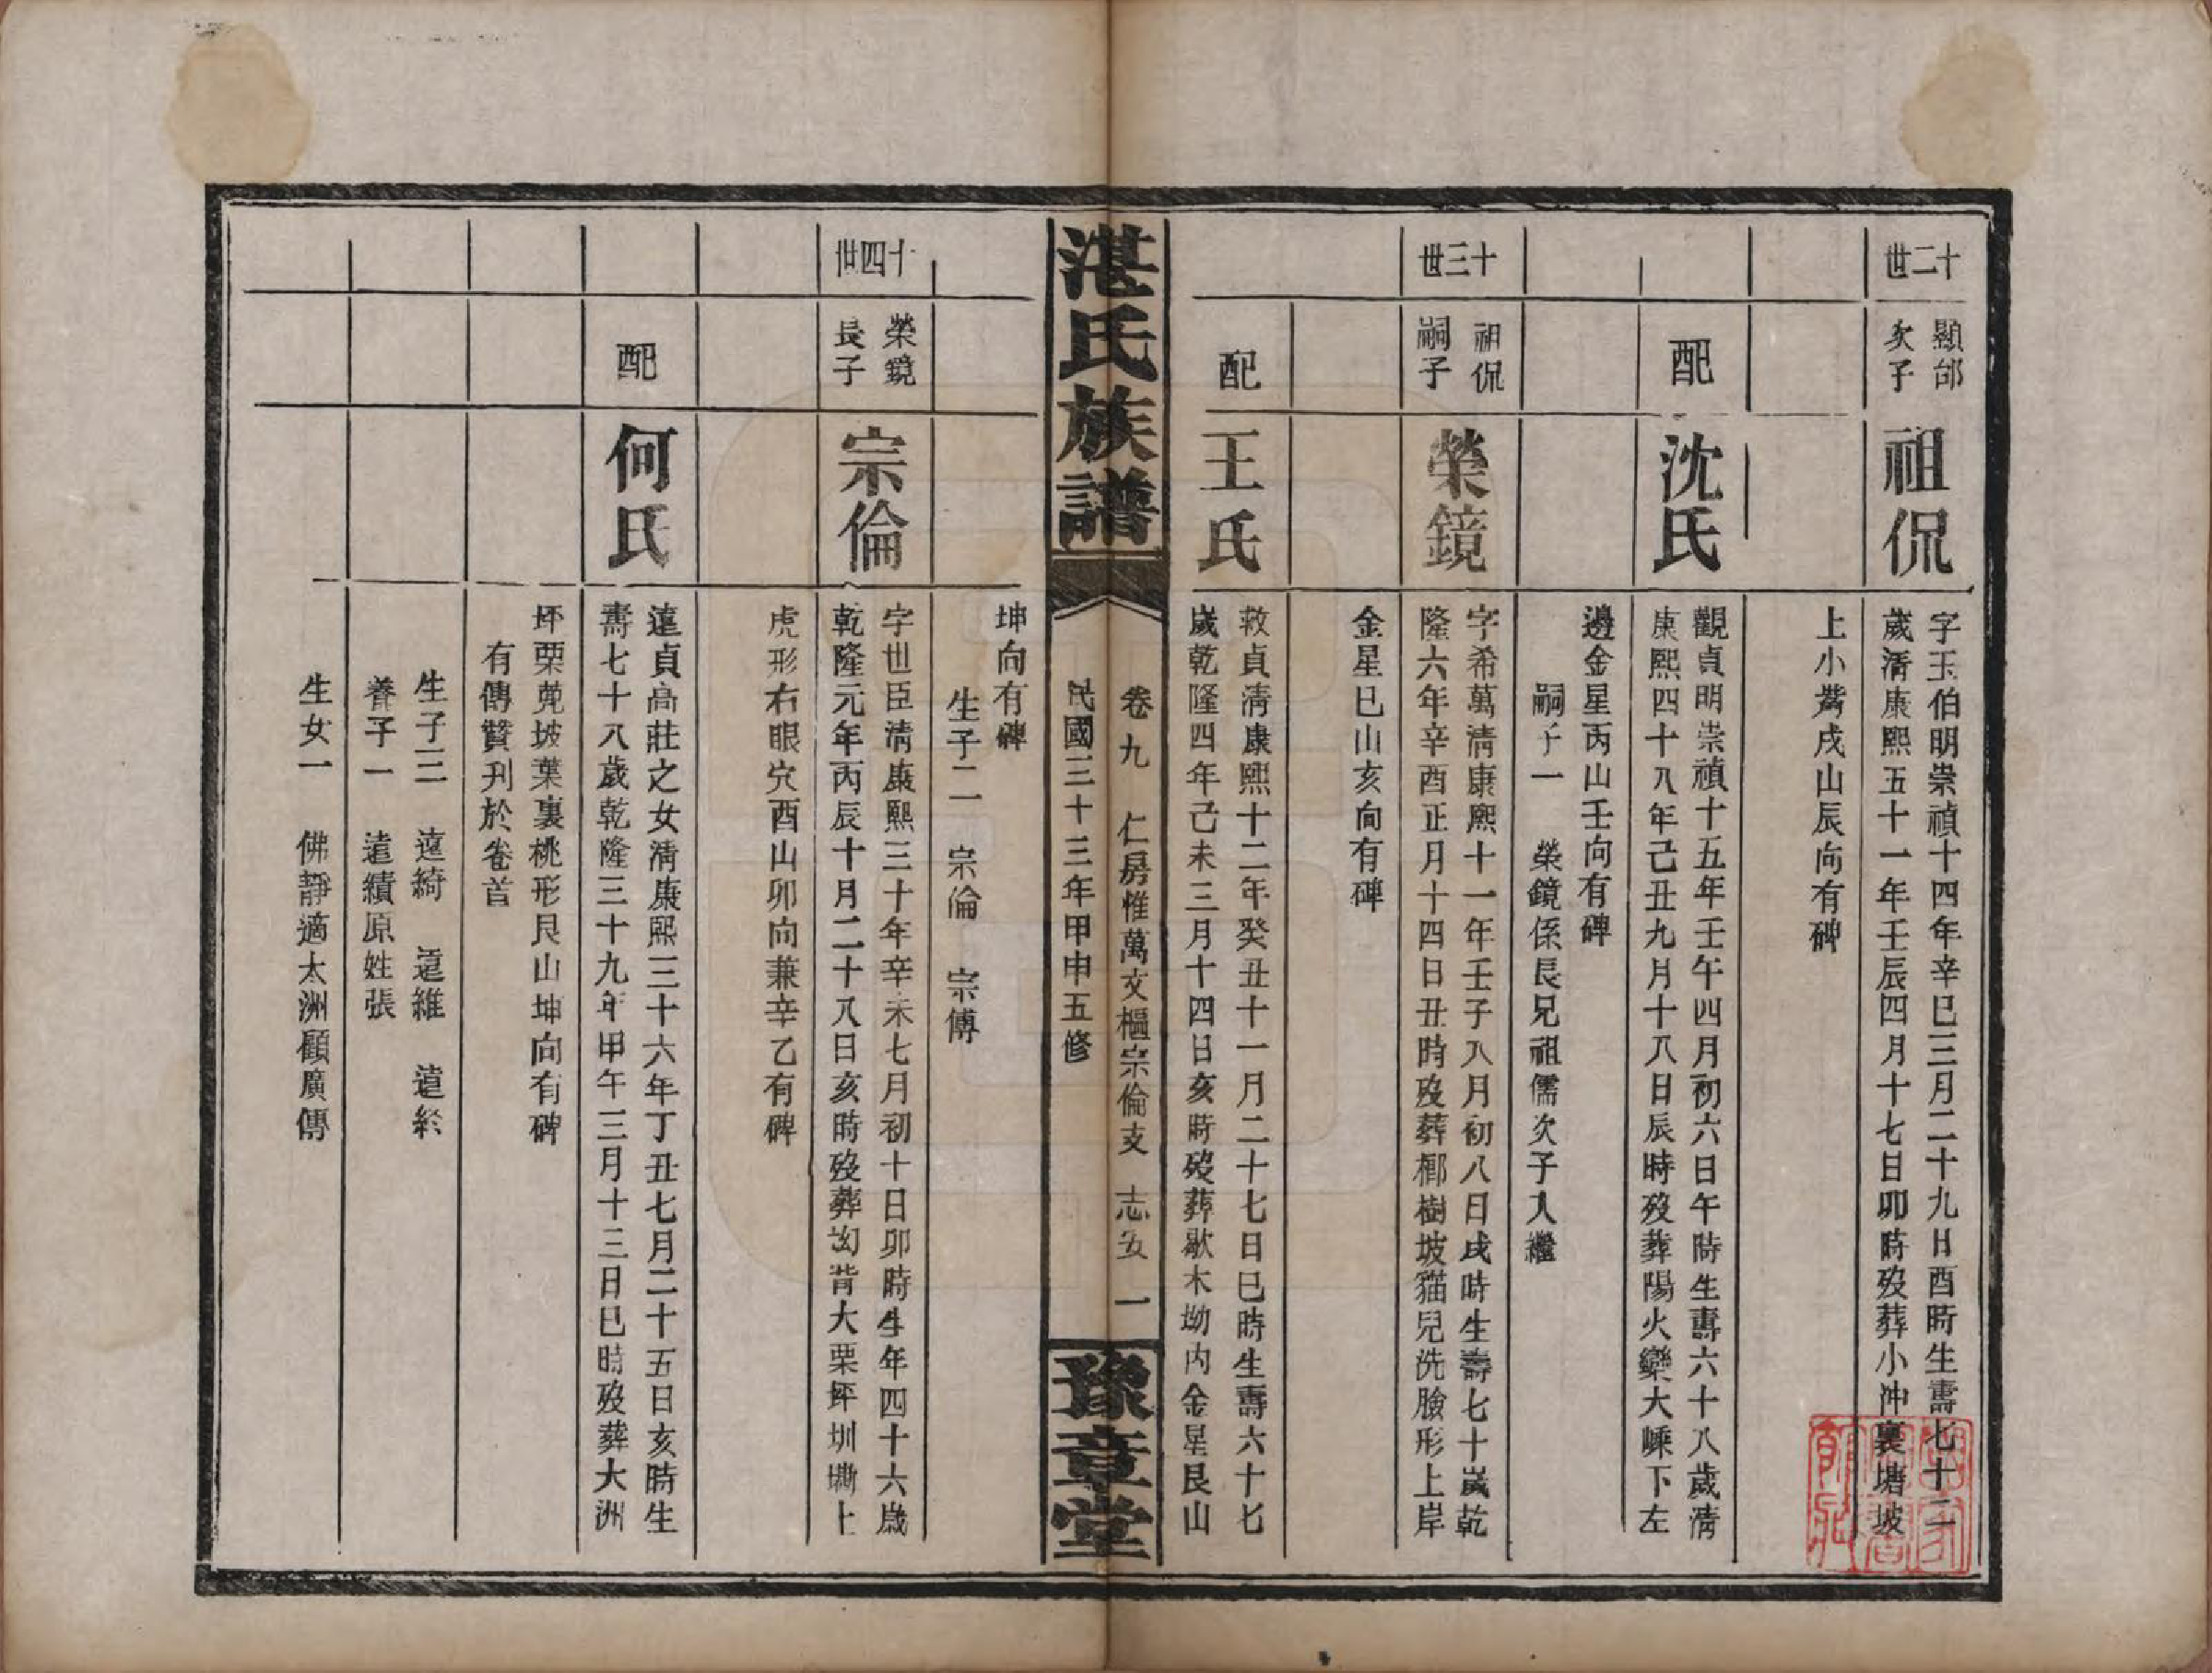 十二世
顯邰
次子
祖侃
字玉伯明崇禎十四年辛巳三月二十九日酉時生壽七十二
歲清康熙五十一年壬辰四月十七日卯時歿葬小沖裏塘坡
上小嘴戌山辰向有碑
配
沈氏
觀貞明崇禎十五年壬午四月初六日午時生壽六十八歲清
康熙四十八年己丑九月十八日辰時歿葬陽火欒大嵊下左
邊金星丙山壬向有碑
嗣子一 榮鏡係長兄祖儒次子入繼
十三世
祖侃
嗣子
榮鏡
字希萬清康熙十一年壬子八月初八日戌時生壽七十歲乾
隆六年辛酉正月十四日丑時歿葬楖樹坡猫兒洗臉形上岸
金星巳山亥向有碑
配
王氏
敦貞清康熙十二年癸丑十一月二十七日巳時生壽六十七
歲乾隆四年己未三月十四日亥時歿葬歇木坳內金星艮山
湛氏族譜
卷九 仁房惟萬文樞宗倫支 志五 一
民國三十三年甲申五修
豫章堂
坤向有碑
生子二 宗倫 宗傅
十四世
榮鏡
長子
宗倫
字世臣清康熙三十年辛未七月初十日卯時生年四十六歲
乾隆元年丙辰十月二十八日亥時歿葬坳背大栗坪圳墈上
虎形右眼穴酉山卯向兼辛乙有碑
配
何氏
遠貞高莊之女清康熙三十六年丁丑七月二十五日亥時生
壽七十八歲乾隆三十九年甲午三月十三日巳時歿葬大洲
坪栗蔸坡葉裏桃形艮山坤向有碑
有傳贊刋於卷首
生子三 遠綺 遠維 遠
養子一 遠績原姓張
生女一 佛靜適太洲顧廣傳